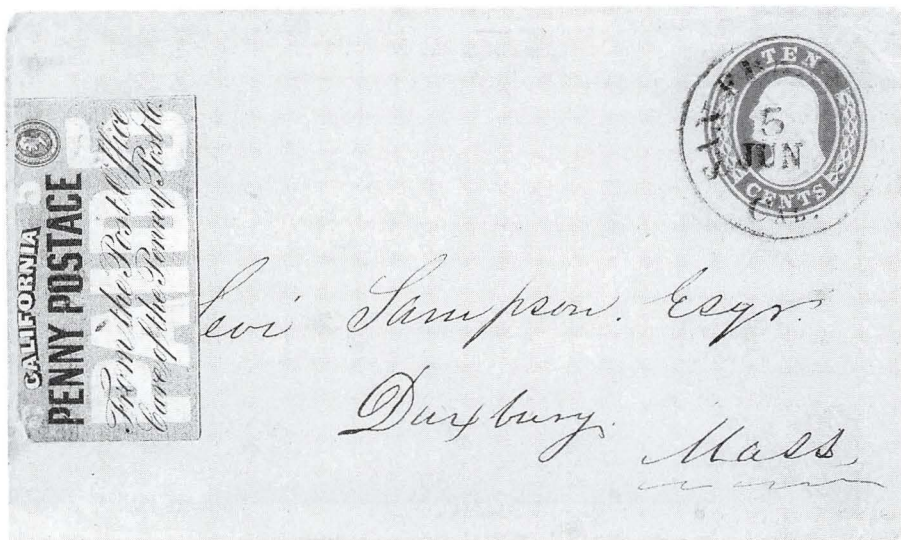 CALIFORNIA
PENNY POSTAGE
PAID 5
From the Post Office
Care of the Penny Post Co
TEN
CENTS
SAN FRAN
5
JUN
CAL.
Levi Sampson. Esqr.
Duxbury.
Mass